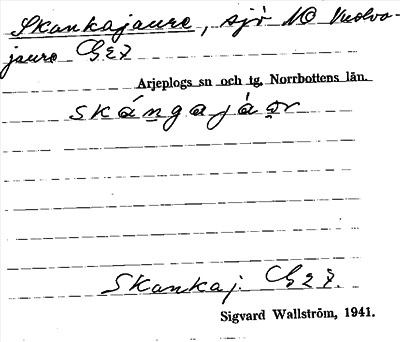 Skankajaure, sjö NO Vuolva-
jaure
Arjeplogs sn och tg, Norrbottens län.
skángajáər
Skankaj.
Sigvard Wallström, 1941.